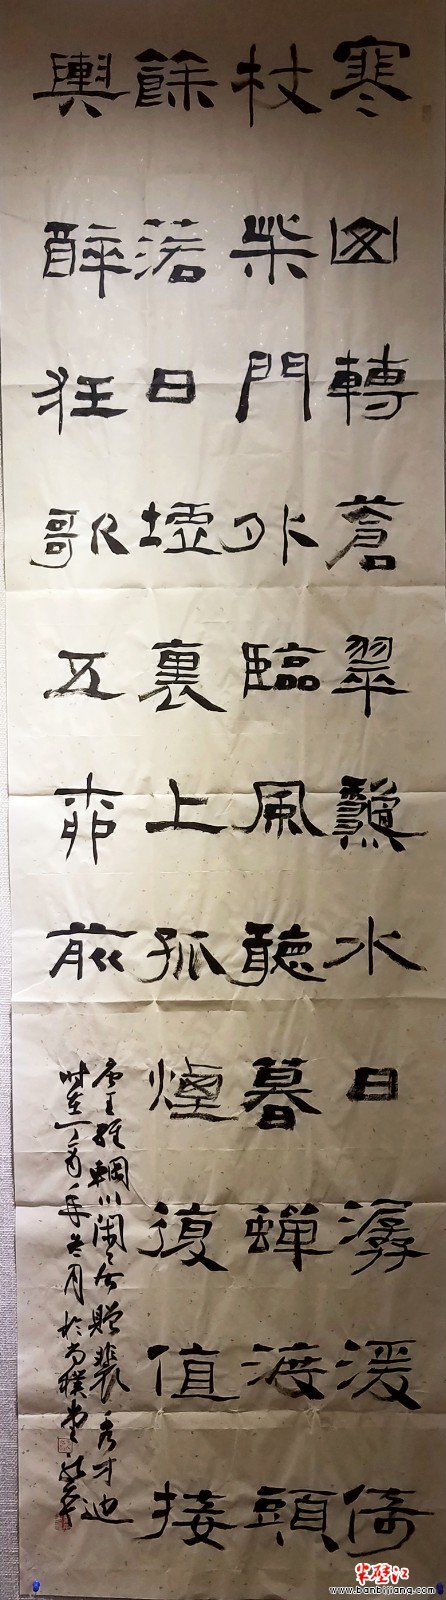 寒山轉蒼翠龝水日潺湲倚
杖柴門外臨風聽暮蟬渡頭
餘落日墟裏上孤煙復值接
輿醉狂歌五柳前
唐王維輞川閑居贈裴秀才迪
时在丁酉年冬月於尚璞堂
半壁江
www.banbijiang.com